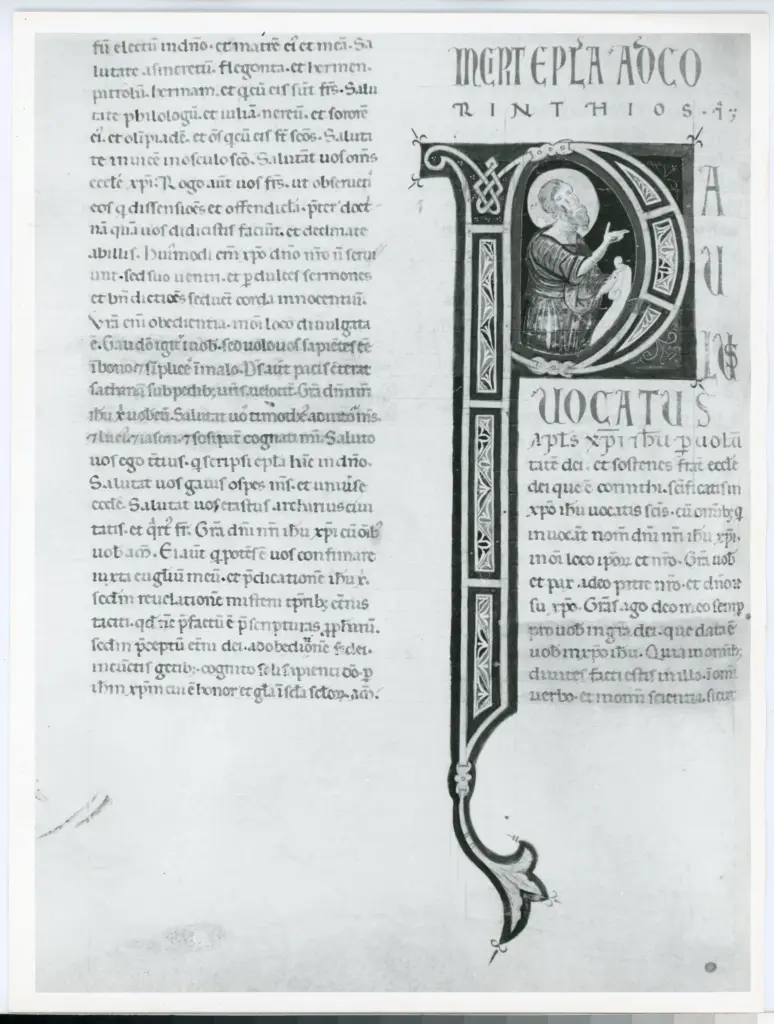 fũ electũ in dño· et matrẽ ei᾽ et meã· Sa
lutate asincretũ· flegonta· et hermen·
patrobã· hermam· et q̃ cũ eis sũt fr̃s· Salu
tate philologũ· et iuliã· nereũ· et sororẽ
ei᾽· et olĩpiadẽ· et õs q̃ cũ eis st̃ scõs· Saluta
te inuicẽ in osculo scõ· Salutãt uos om̃s
eccłe xp̃i· Rogo aũt uos fr̃s· ut obseruetĩ
eos q dissensiões et offendicła· p̃ter doct
nã quã uos didicistis faciũt· et declinate
ab illis· Hui᾽modi eñi xp̃o dño nr̃o ñ serui
unt· sed suo uentri· et p dulces sermones
et bñdictiões seducũt corda innocentiũ·
Vr̃a eñi obedientia· in õi loco diuulgata
ẽ· Gaudõ igit᾽ ĩ uob· sed uolo uos sapiẽtes eẽ
ĩ bono· ⁊ sĩplices ĩ malo· D᾽s aũt pacis cõterat
sathanã sub pedib; ur̃is uelociť· Gr̃a dñi nr̃i
ihũ x̃ uobcũ· Salutat uos timothe᾽ adiutõ m̃s·
⁊ luci᾽ ⁊ iason· ⁊ sosipař cognati mĩ· Saluto
uos ego tẽtius· q scripsi epła hãc in dño·
Salutat uos gaius ospes m̃s· et uniuẽse
eccłe· Salutat uos erastus archarius ciui
tatis· et q̃rt᾽ fr̃· Gr̃a dñi nr̃i ihũ xp̃i cũ oĩb᾽
uob· am̃· Ei aũt q̃ potẽs ẽ uos confirmare
iuxta eugłiũ meũ· et p̃dicationẽ ihũ x̃·
scdm̃ reuelationẽ misterii tp̃rib; et̃nis
taciti· qd᾽
sed̃m p̃ceptũ et̃ni dei· ad obediõnẽ fidei·
in cũctis gẽtib;· cognito soli sapienti dõ· p
ihm̃ xp̃m cui ẽ honor et głã ĩ scła scłor̃· am̃·
INCIPIT EPĽA AD CO
RINTHIOS· ·I·;
PAULUS
UOCATUS
apłs xp̃i ihũ p uolũ
tatẽ dei· et sostenes frãt᾽ eccłe
dei que ẽ corinthi· sc̃ificatis in
xp̃o ihũ uocatis sc̃is· cũ om̃ib; q
inuocãt nom̃ dñi nr̃i ihũ xp̃i·
in õi loco ipsor̃ et nr̃o· Gr̃a uob
et pax· a deo patre nr̃o· et dño ił
su xp̃o· Gr̃as ago deo meo semp
pro uob in gr̃a dei· que data ẽ
uob in xp̃o ihũ· Quia in omĩb;
diuites facti estis in illo· ĩ omĩ
uerbo· et in omĩ scientia· sicut